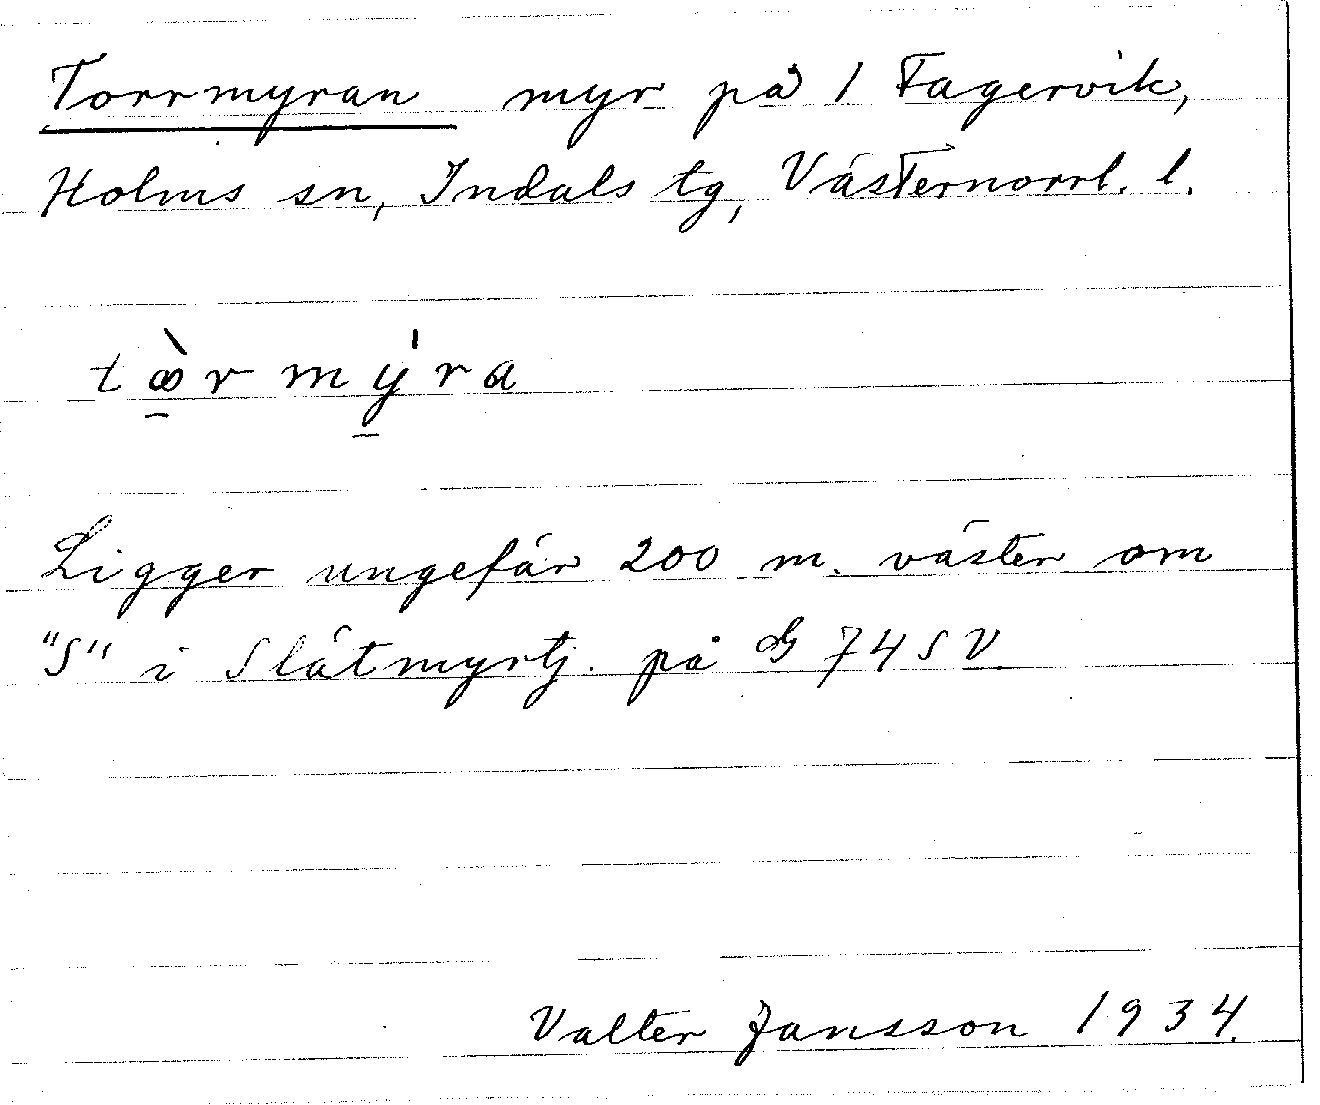 Torrmyran myr på 1 Fagervik,
Holms sn, Indals tg, Västernorrl. l.
tꝏ̀r mýra
Ligger ungefär 200 m. väster om
"S" i Slåtmyrtj. på G 74 S V
Valter Jansson 1934.